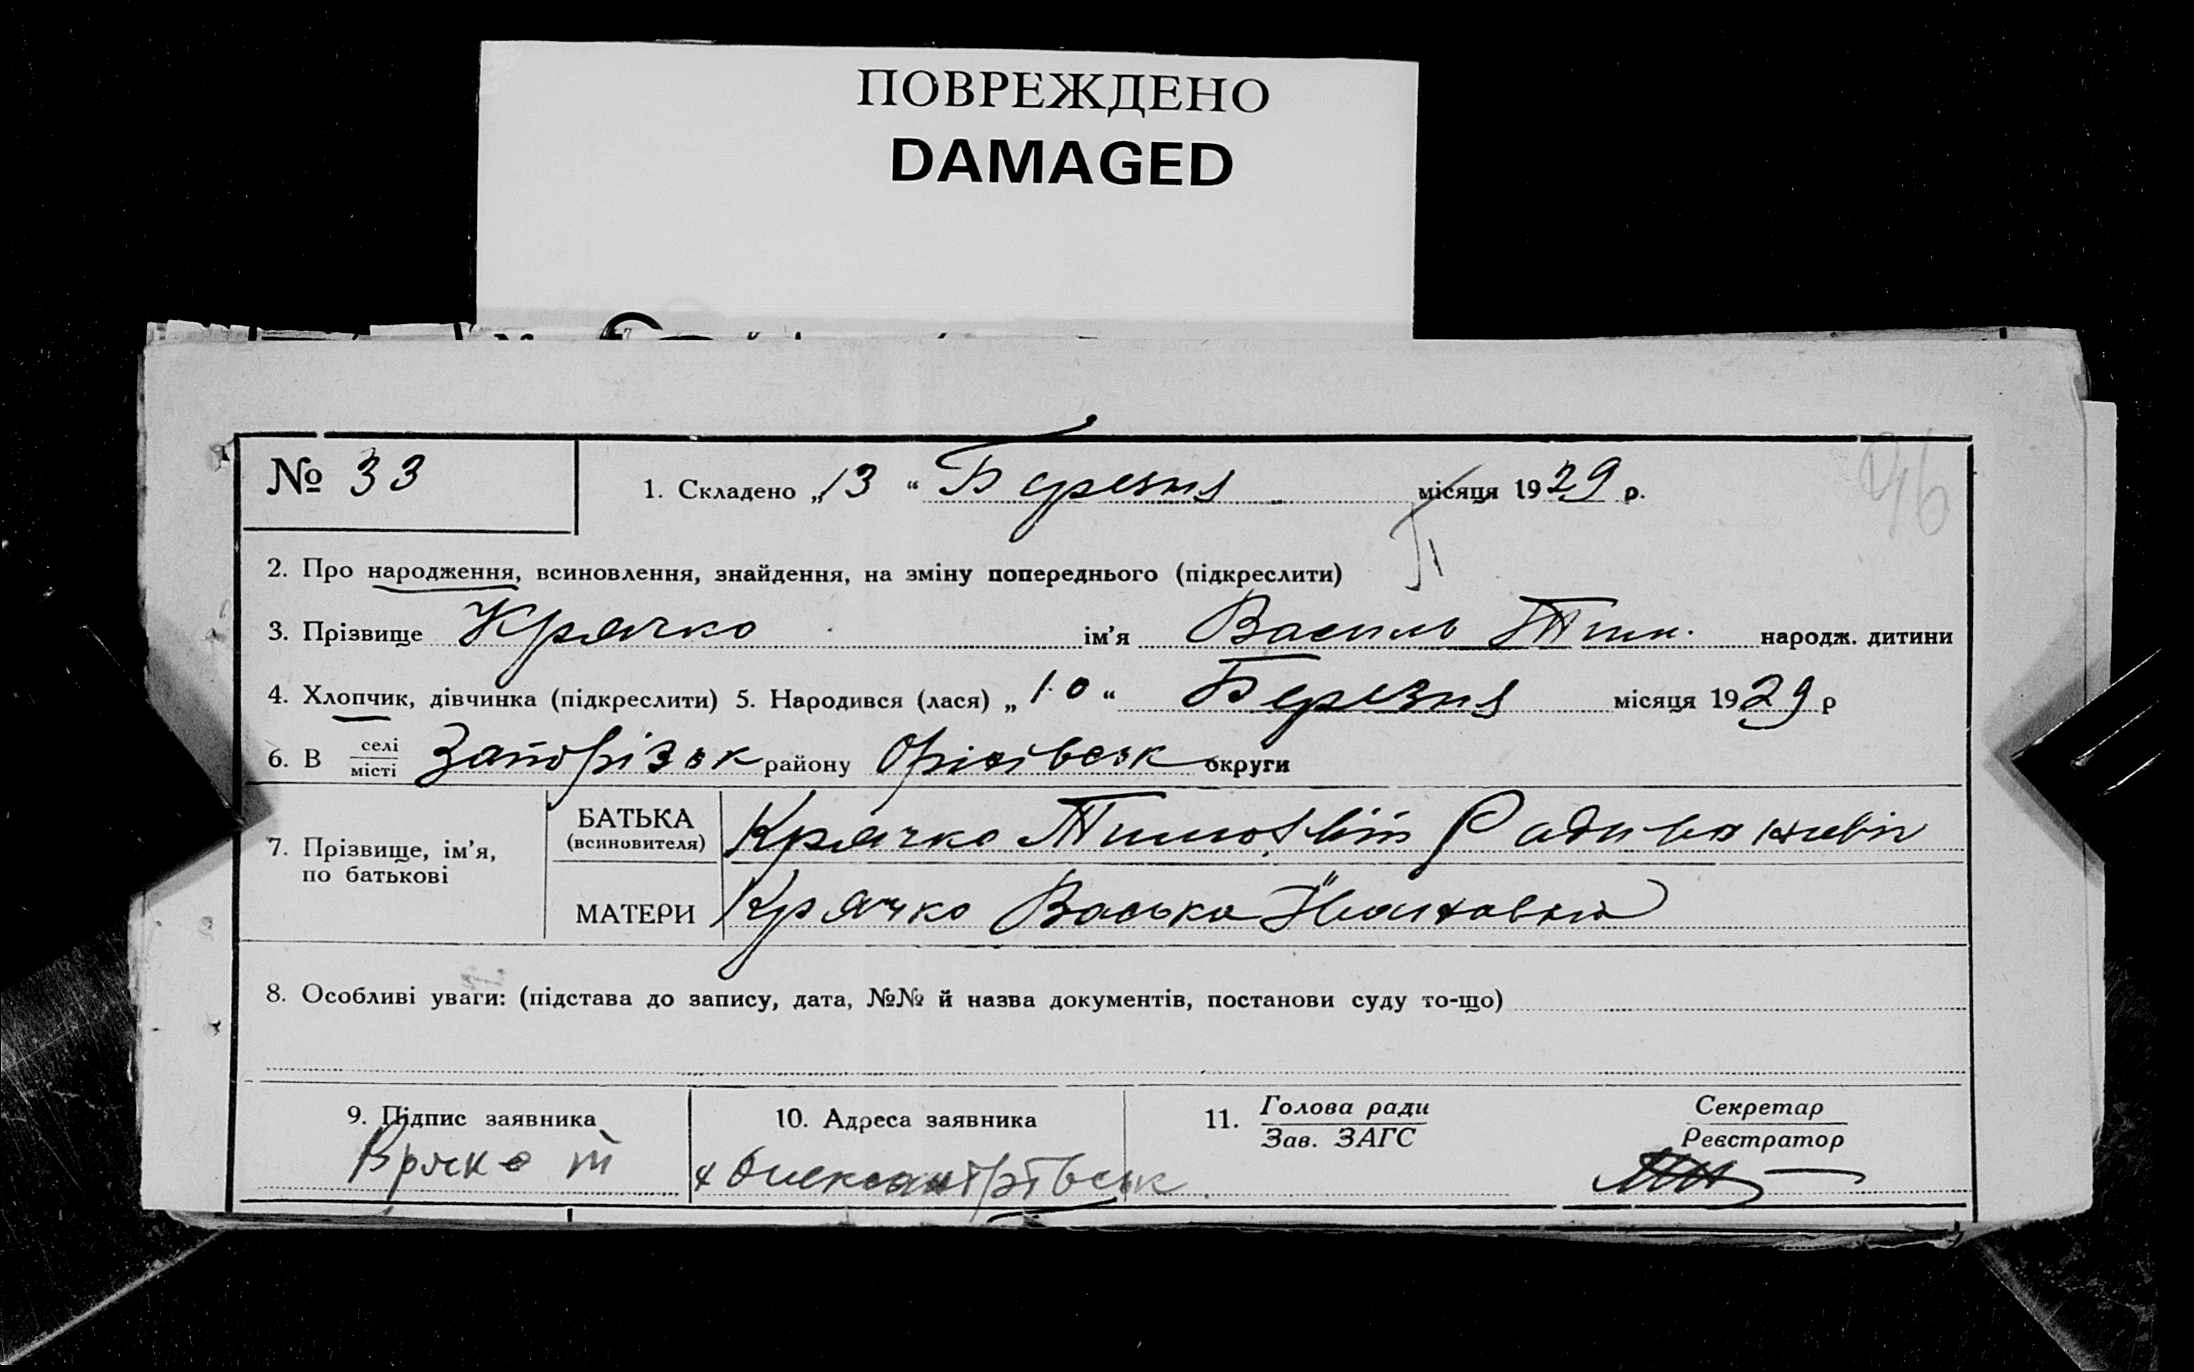 ПОВРЕЖДЕНО
DAMAGED
№ 33
1. Складено „13“ Березня місяця 1929 р.
46
2. Про народження, всиновлення, знайдення, на зміну попереднього (підкреслити)
3. Прізвище Крячко ім’я Василь Тим. народж. дитини
4. Хлопчик, дівчинка (підкреслити) 5. Народився (лася) „10“ Березня місяця 1929 р
6. В селі/місті Запорізьк району Оріхівськ округи
7. Прізвище, ім’я, по батькові
БАТЬКА (всиновителя) Крячко Тимофій
МАТЕРИ Крячко Васька
8. Особливі уваги: (підстава до запису, дата, №№ й назва документів, постанови суду то-що)
9. Підпис заявника 10. Адреса заявника 11. Голова ради/Зав. ЗАГС Секретар/Реєстратор